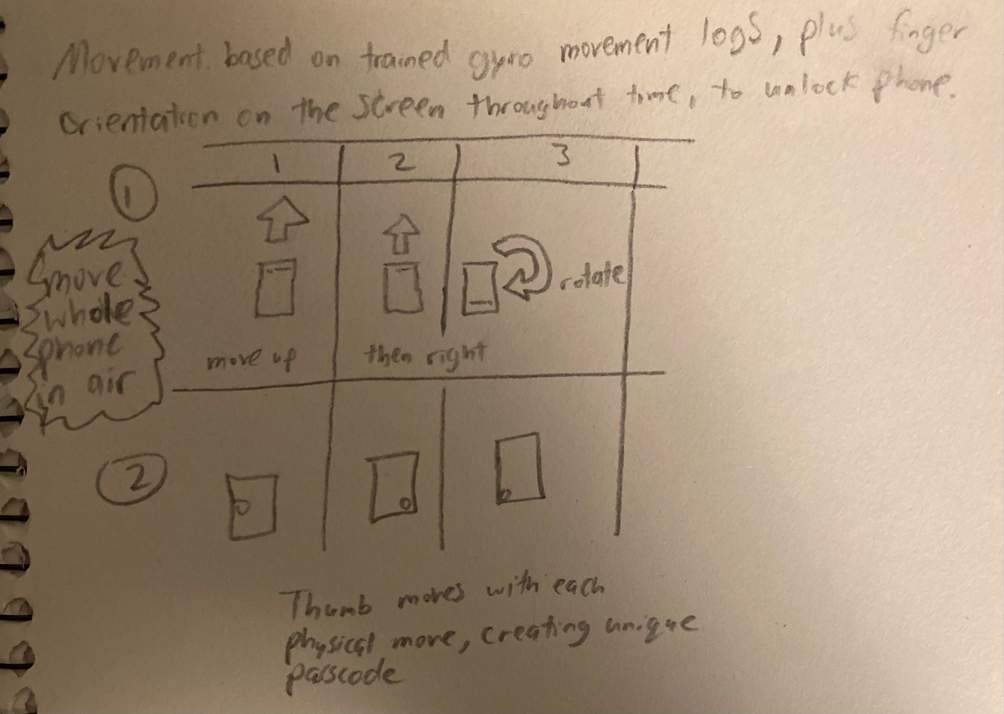 Movement based on trained gyro movement logs, plus finger
orientation on the screen throughout time, to unlock phone.
1 2 3
1
move
whole
phone
in air
rotate
move up then right
2
Thumb moves with each
physical move, creating unique
passcode